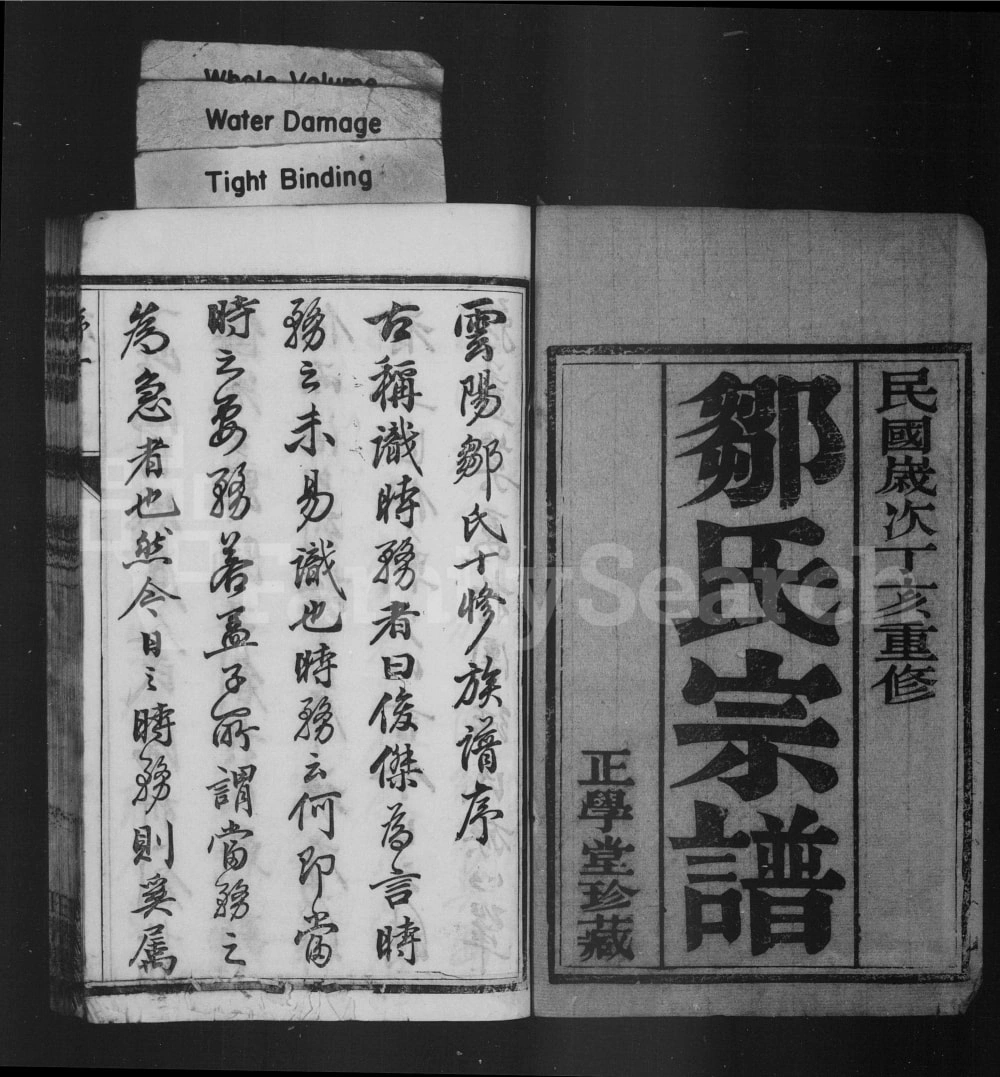 Whole Volume
Water Damage
Tight Binding
民國歲次丁亥重修
鄒氏宗譜
正學堂珍藏
雲陽鄒氏十修族譜序
古稱識時務者曰俊傑為言時
務之未易識也時務云何即當
時之要務若孟子所謂當務之
為急者也然今日之時務則奚属
FamilySearch